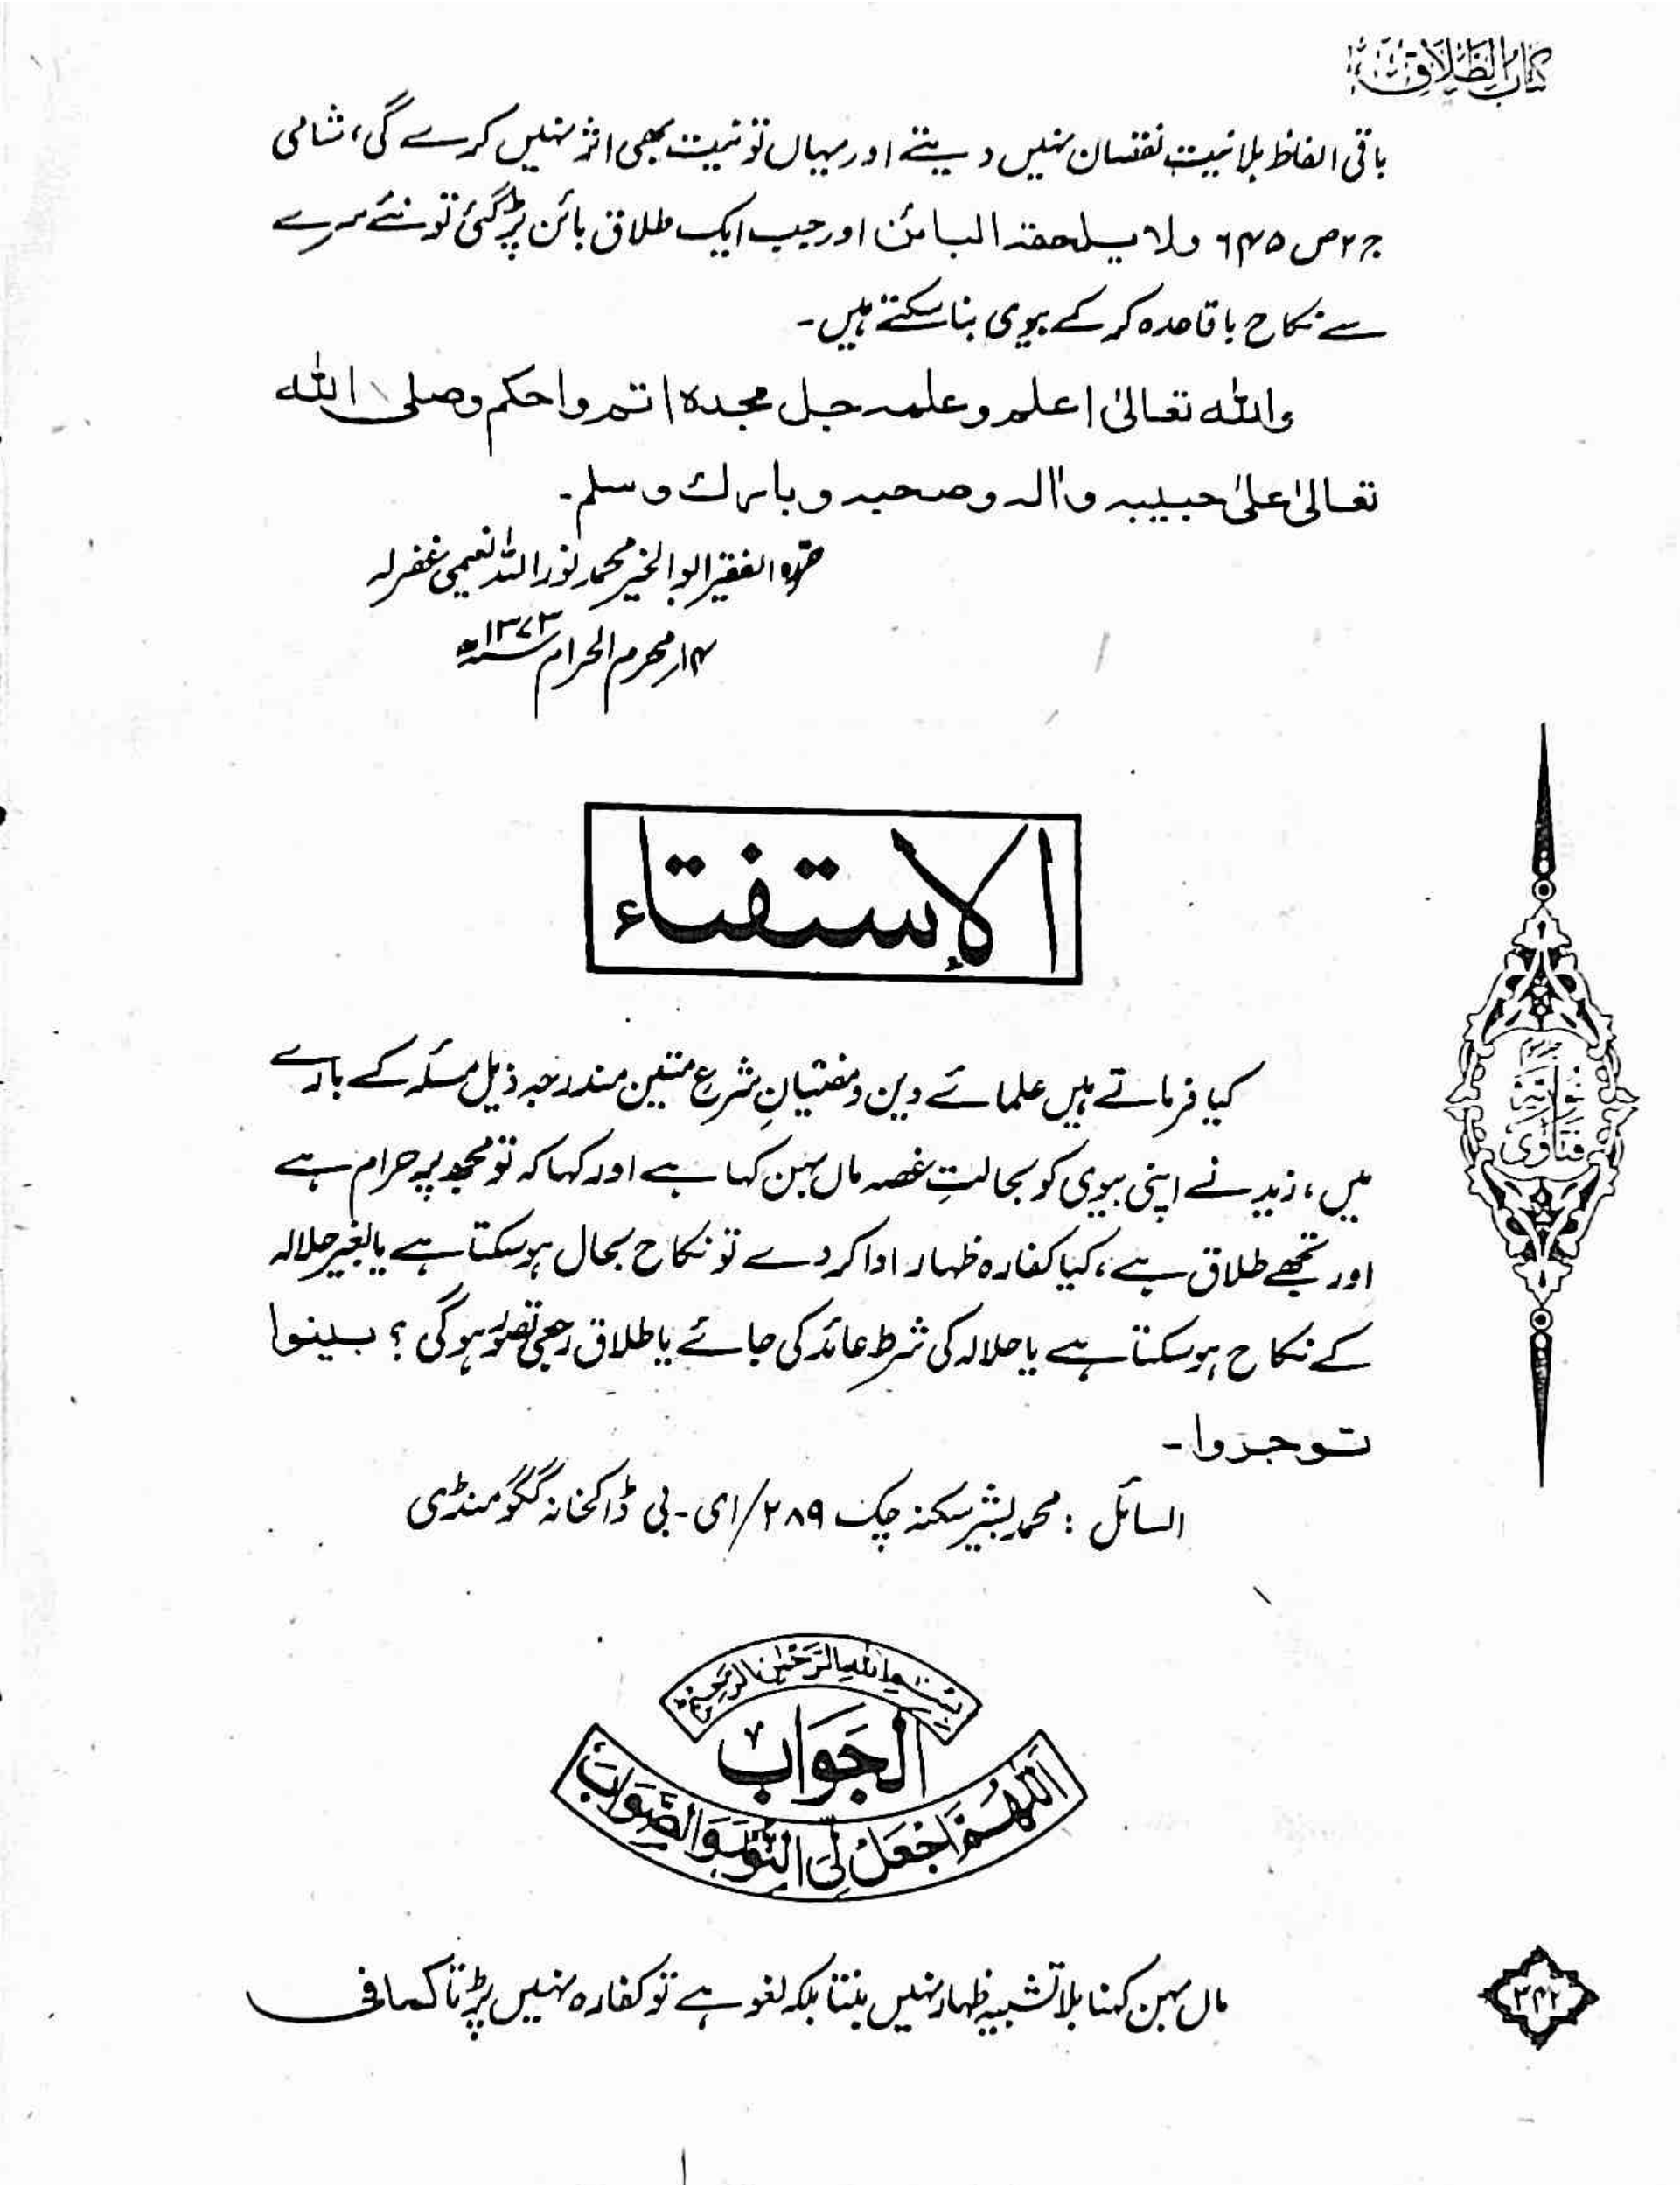 کتاب الطلاق
باقی الفاظ بلا نیت نقصان نہیں دیتے اور یہاں تو نیت بھی اثر نہیں کرے گی، شامی
ج۲ ص ۶۴۵ ولا یلحقہ البائن اور جب ایک طلاق بائن پڑ گئی تو نئے سرے
سے نکاح باقاعدہ کر کے بیوی بنا سکتے ہیں۔
واللہ تعالیٰ اعلم وعلمہ جل مجدہ اتم واحکم وصلی اللہ
تعالیٰ علیٰ حبیبہ واٰلہ وصحبہ وبارك وسلم۔
حررہ الفقیر ابو الخیر محمد نور اللہ النعیمی غفرلہ
۱۴ محرم الحرام ۱۳۷۳ھ
الإستفتاء
کیا فرماتے ہیں علمائے دین و مفتیانِ شرع متین مندرجہ ذیل مسئلہ کے بارے
میں، زید نے اپنی بیوی کو بحالتِ غصہ ماں بہن کہا ہے اور کہا کہ تو مجھ پر حرام ہے
اور تجھے طلاق ہے، کیا کفارہ ظہار ادا کر دے تو نکاح بحال ہو سکتا ہے یا بغیر حلالہ
کے نکاح ہو سکتا ہے یا حلالہ کی شرط عائد کی جائے یا طلاق رجعی تصور ہو گی ؟ بینوا
توجروا۔
السائل : محمد بشیر سکنہ چک ۲۸۹/ای۔بی ڈاکخانہ گگو منڈی
فتاوی نوریہ
بسم اللہ الرحمٰن الرحیم
الجَوَابُ
اللّٰهُمَّ اجْعَلْ لِّیَ النُّوْرَ وَالصَّوَابَ
ماں بہن کہنا بلا تشبیہ ظہار نہیں بنتا بلکہ لغو ہے تو کفارہ نہیں پڑتا کما فی
۳۴۲